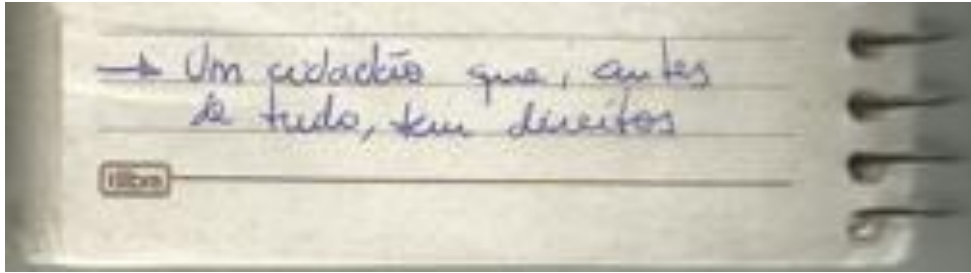 → Um cidadão que, antes
de tudo, tem direitos
tilibra